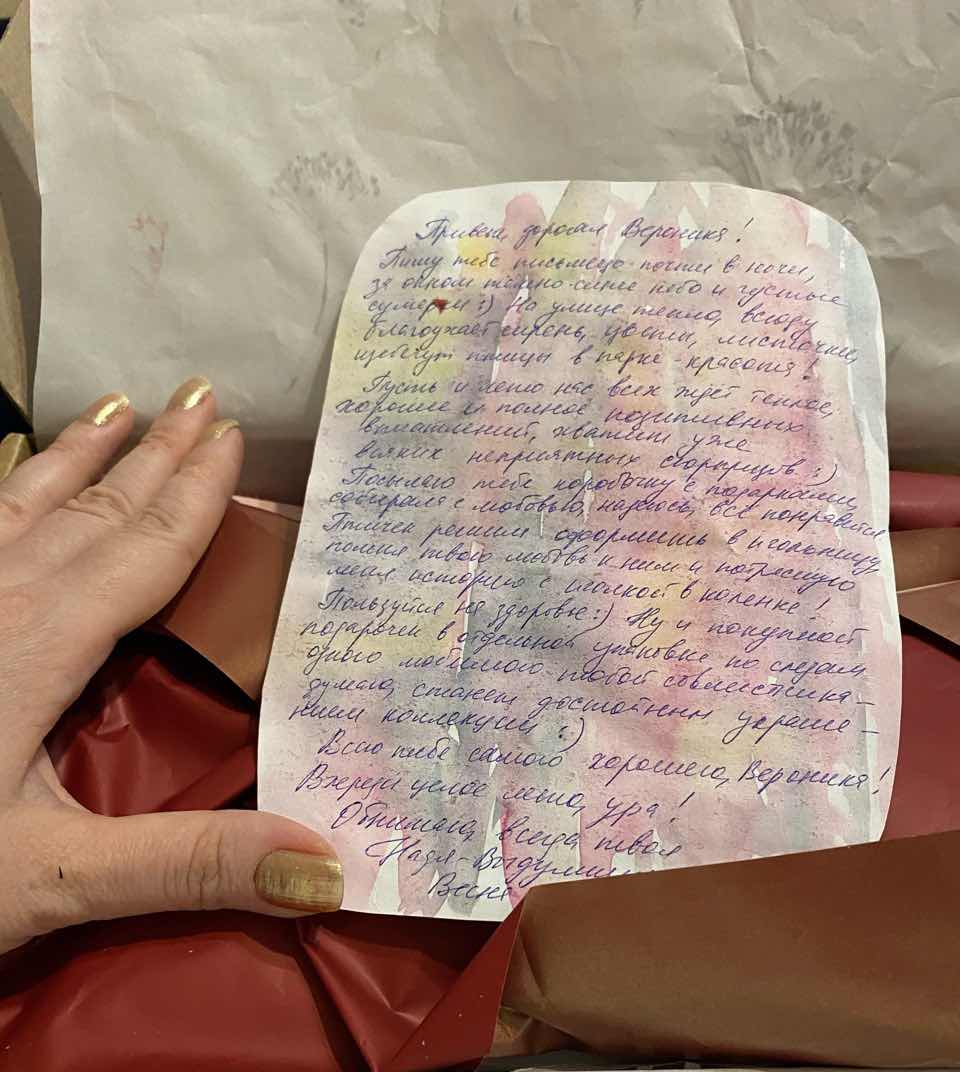 Привет, дорогая Вероника!
Пишу тебе письмецо почти в ночи,
за окном тёмно-синее небо и густые
сумерки :) На улице тепло, всюду
благоухает сирень, цветы, листочки,
щебечут птицы в парке - красота!
Пусть и лето нас всех ждёт теплое,
хорошее и полное позитивных
впечатлений, хватит уже
всяких неприятных сюрпризов :)
Посылаю тебе коробочку с подарками,
собирала с любовью, надеюсь, всё понравится
Птичек решила оформить в игольницу
помня твою любовь к ним и потрясшую
меня историю с иголкой в коленке!
Пользуйся на здоровье :) Ну и
подарочек в отдельной упаковке, по следам
одного любимого тобой совместника -
думаю, станет достойным украше-
нием коллекции :)
Всего тебе самого хорошего, Вероника!
Впереди целое лето, ура!
Обнимаю, всегда твоя
Надя-
Весна